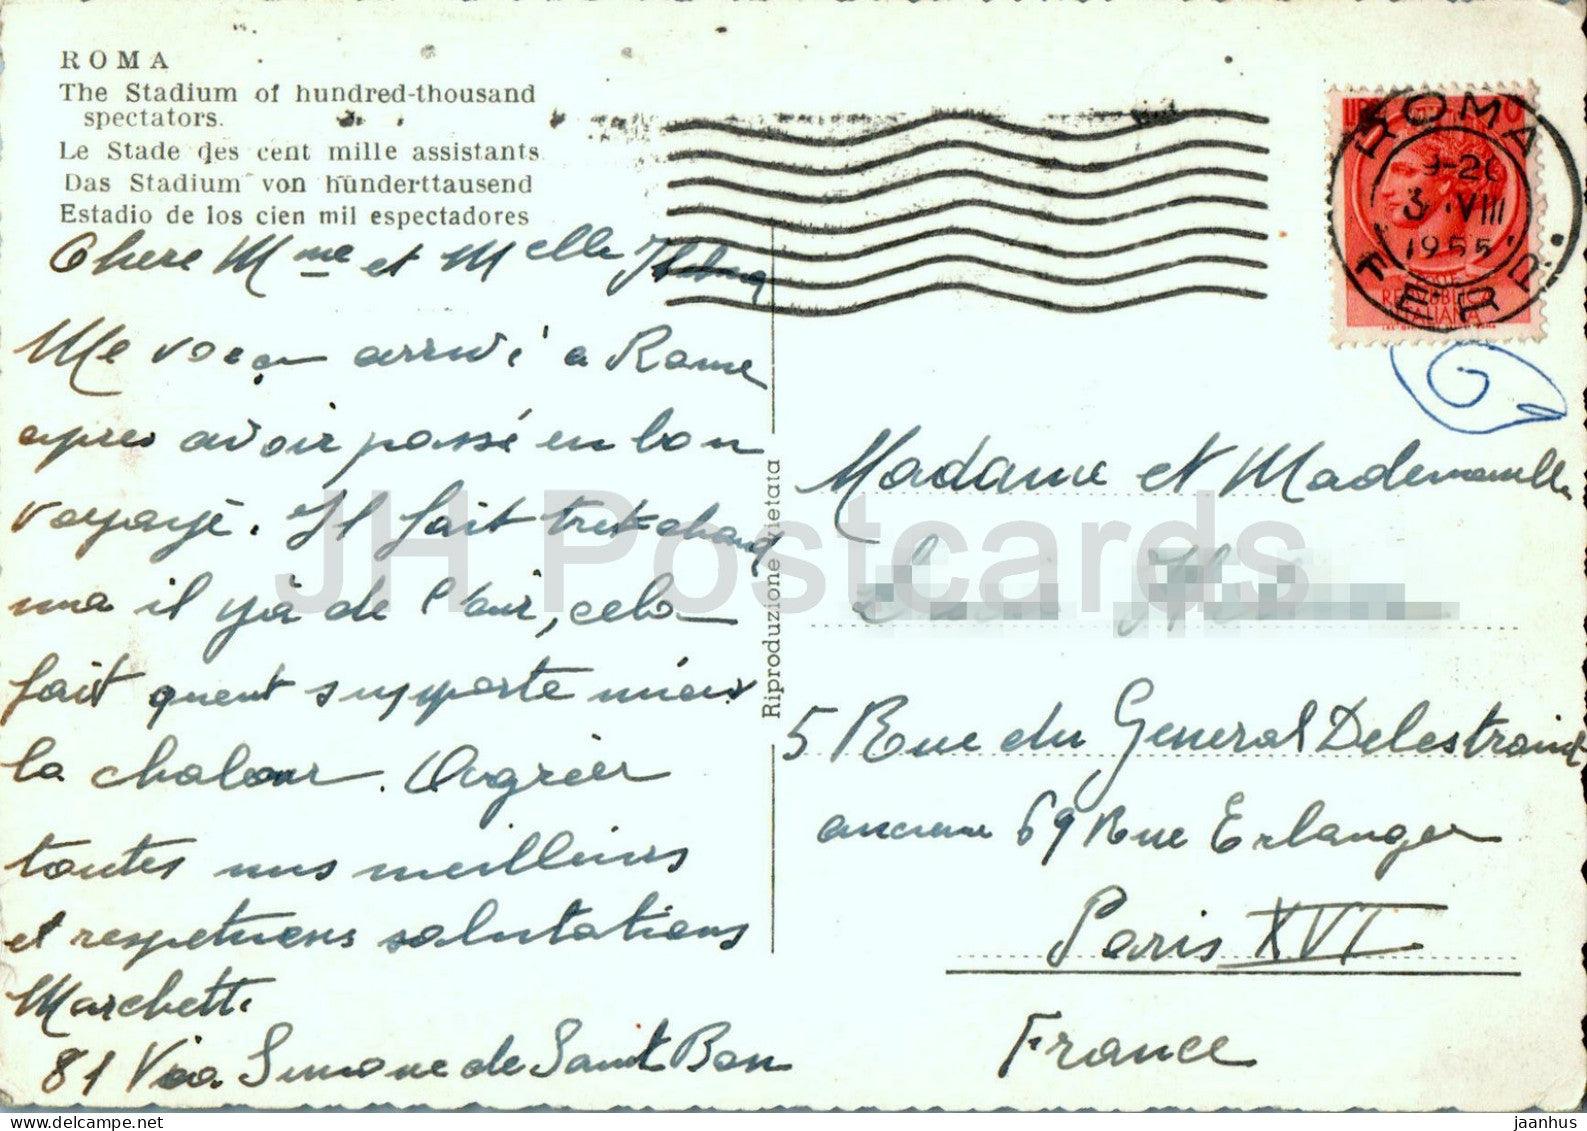 ROMA
The Stadium of hundred-thousand
spectators.
Le Stade des cent mille assistants
Das Stadium von hünderttausend
Estadio de los cien mil espectadores
Chere Mme et Melle
Me voca arrivé a Rome
apres avoir passé en bon
voyage. Il fait tret chaud
ma il yà de l'air, cela
fait quent supporte miex
la chaleur. Agréer
toutes mes meilleures
et respetueses salutations
Marchetti
81 Via Simone de Saint Bon
Riproduzione vietata
LIRE
ROMA
9-20
3 VIII
1955
FERR.
REPUBBLICA
ITALIANA
Madame et Mademoiselle
5 Rue du General Delestraint
ancienne 69 Rue Erlanger
Paris XVI
France
JH Postcards
jaanhus @ delcampe.net